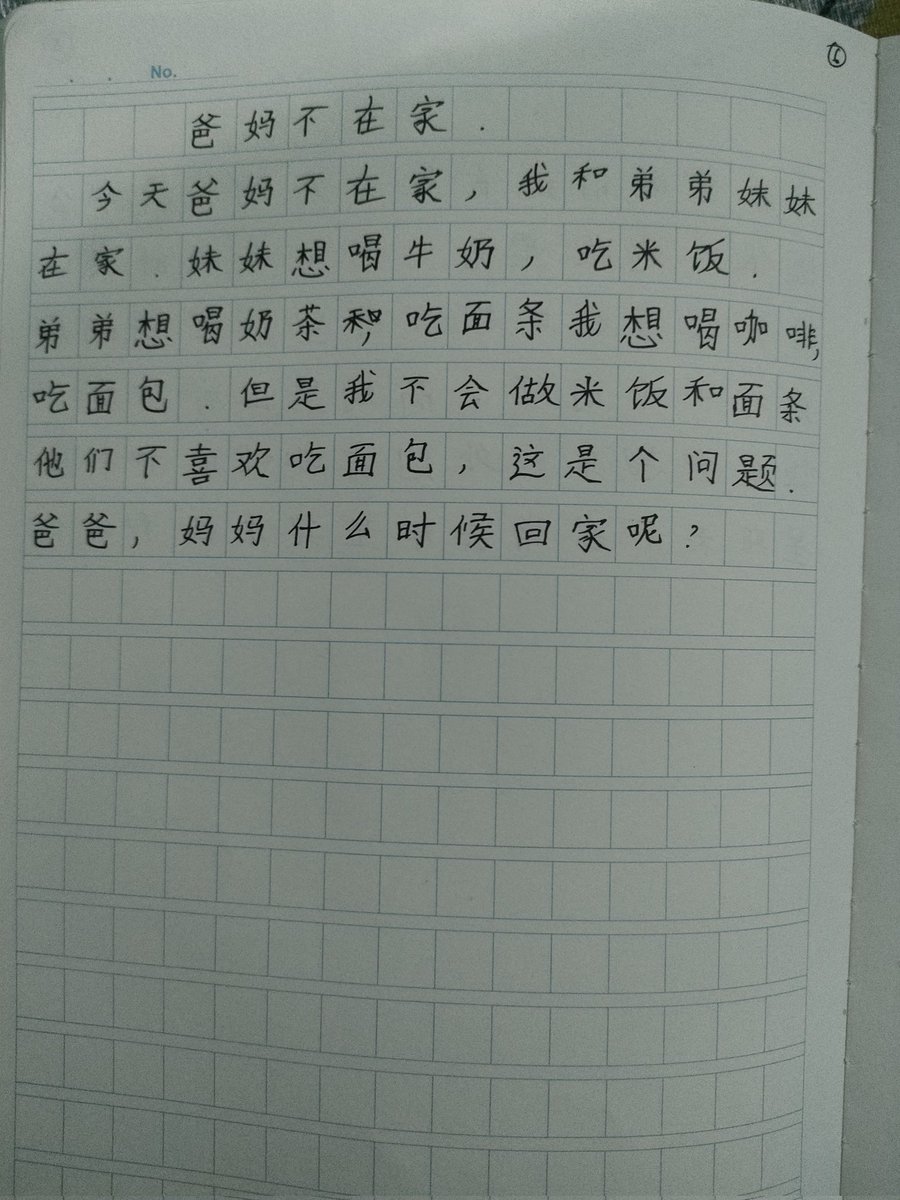 ⑥
No.
爸妈不在家.
今天爸妈不在家，我和弟弟妹妹
在家.妹妹想喝牛奶，吃米饭.
弟弟想喝奶茶和，吃面条我想喝咖啡，
吃面包.但是我不会做米饭和面条
他们不喜欢吃面包，这是个问题.
爸爸，妈妈什么时候回家呢？